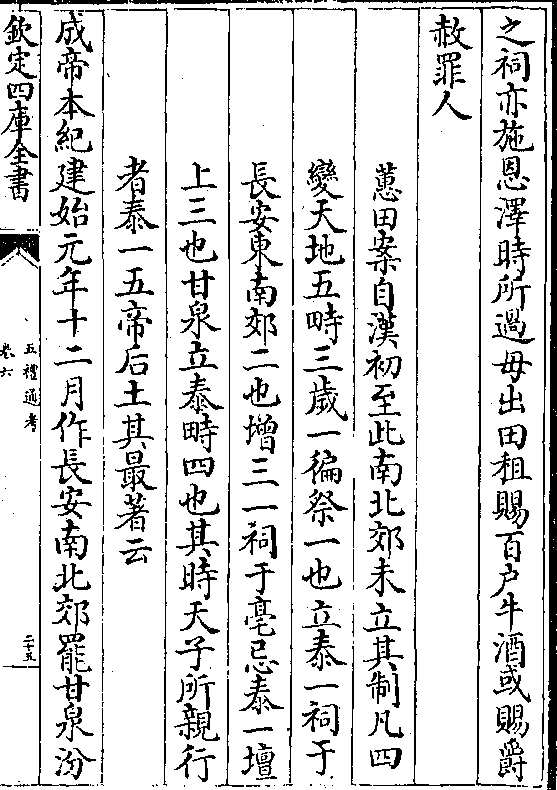 之祠亦施恩澤時所過毋出田租賜百户牛酒或賜爵
赦罪人
蕙田案自漢初至此南北郊未立其制凡四
變天地五畤三歲一徧祭一也立泰一祠于
長安東南郊二也增三一祠于亳忌泰一壇
上三也甘泉立泰畤四也其時天子所親行
者泰一五帝后土其最著云
成帝本紀建始元年十二月作長安南北郊罷甘泉汾
欽定四庫全書
五禮通考
卷六
二十五